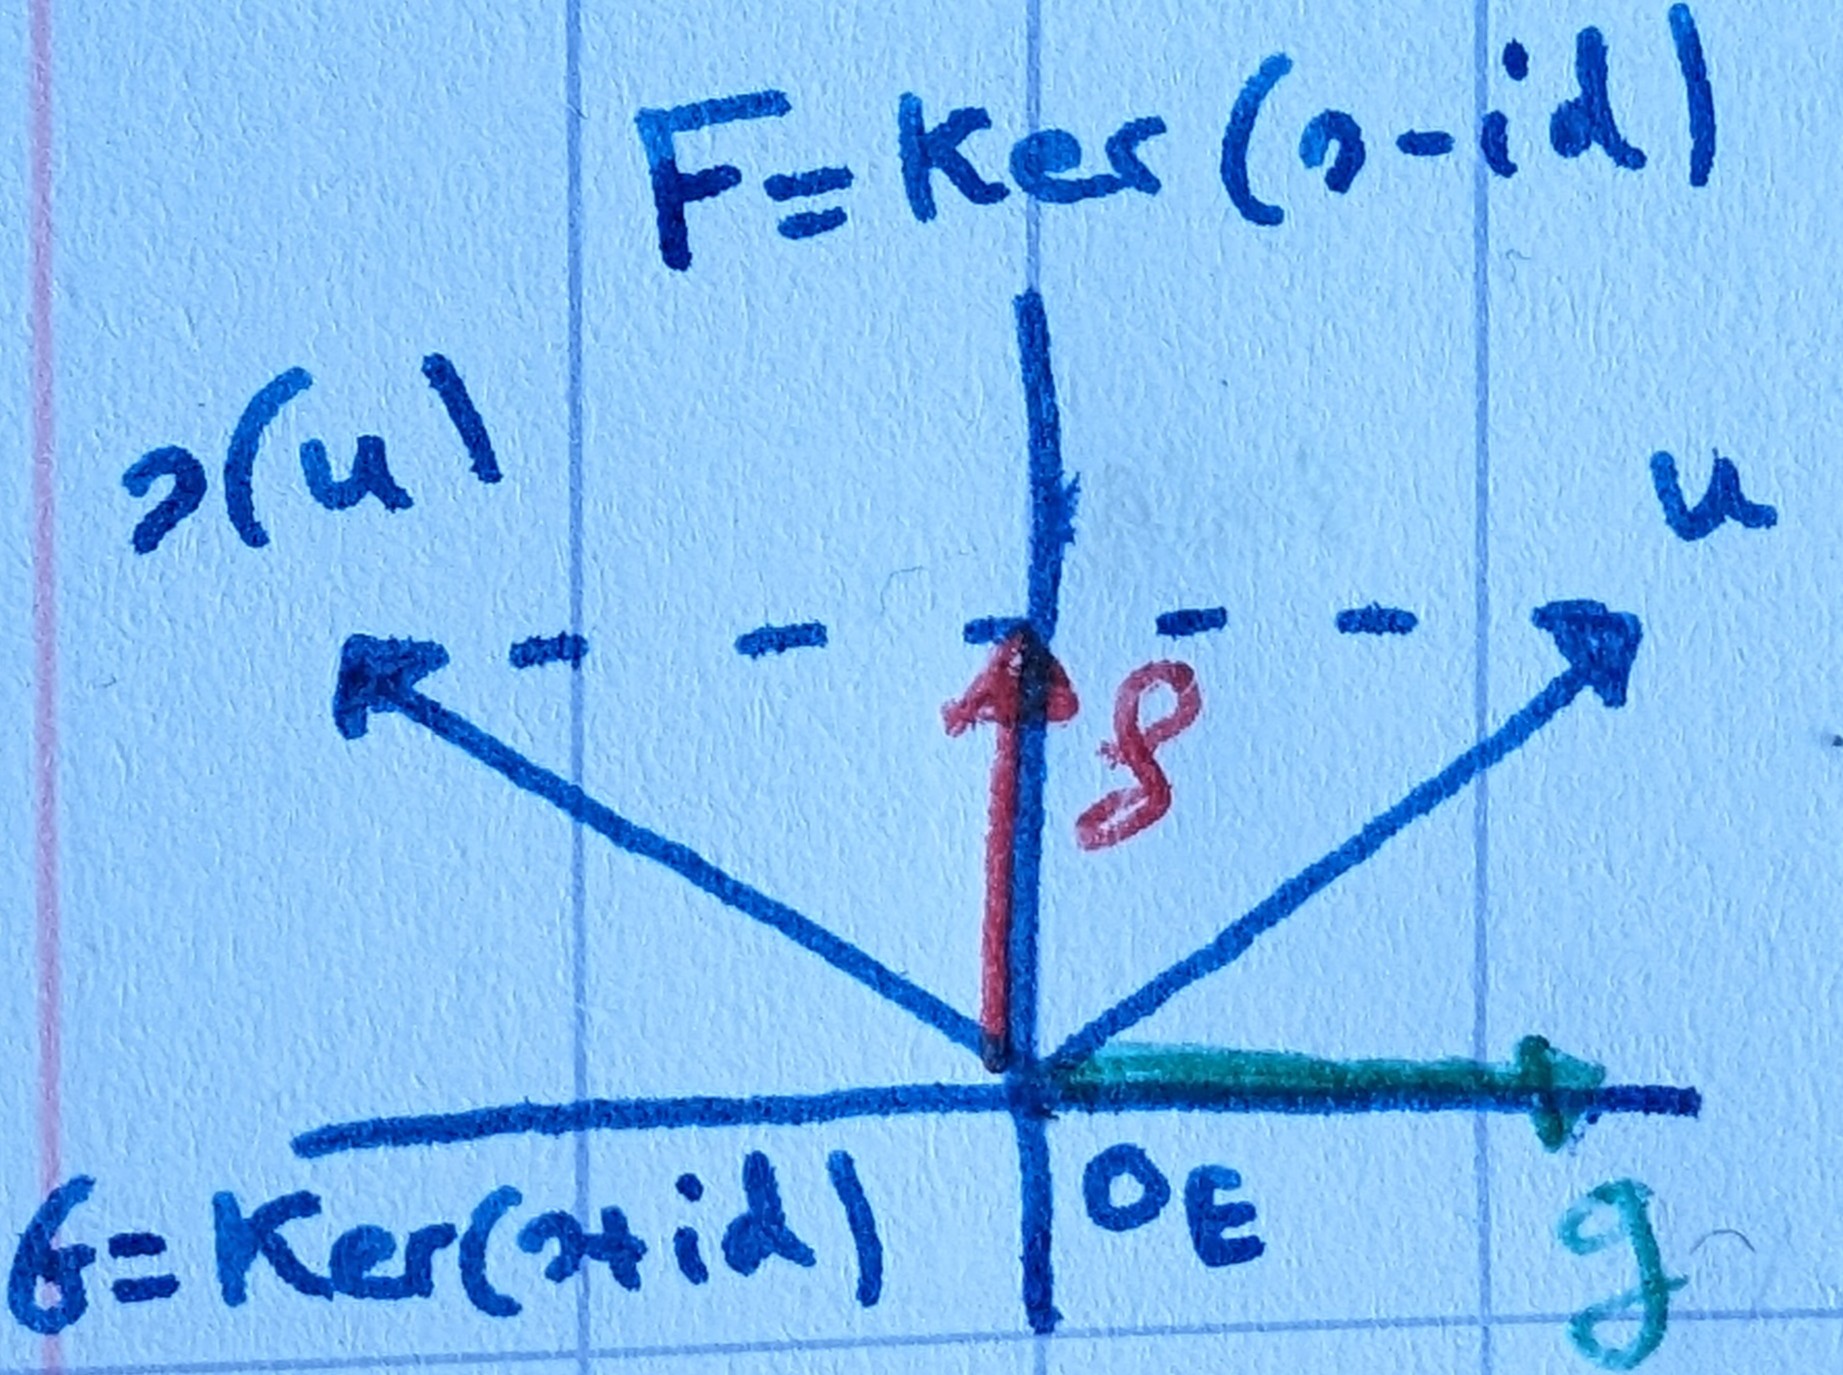 F=Ker(s-id)
s(u)
u
f
G=Ker(s+id)
0E
g